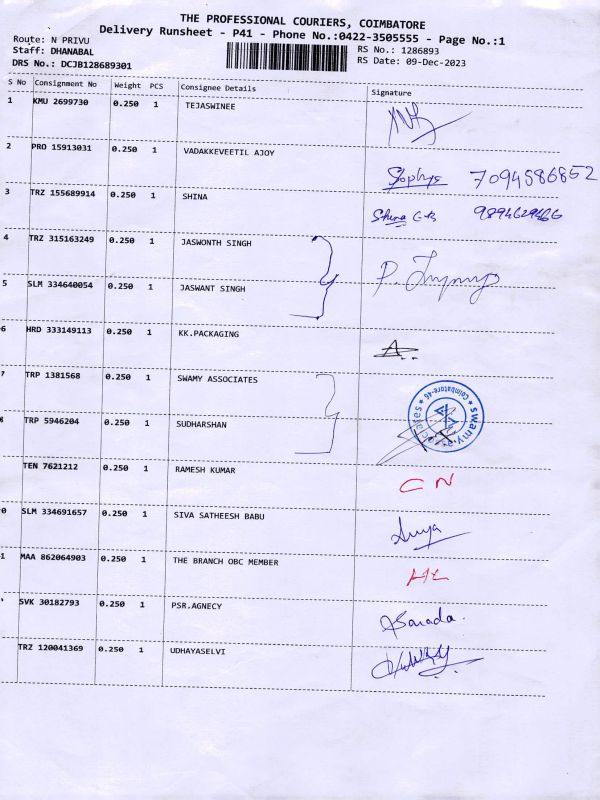 THE PROFESSIONAL COURIERS, COIMBATORE
Delivery Runsheet - P41 - Phone No.:0422-3505555 - Page No.:1
Route: N PRIVU
RS No.: 1286893
Staff: DHANABAL
RS Date: 09-Dec-2023
DRS No.: DCJB128689301
S No Consignment No Weight PCS Consignee Details Signature
1 KMU 2699730 0.250 1 TEJASWINEE
2 PRO 15913031 0.250 1 VADAKKEVEETIL AJOY
7094586852
3 TRZ 155689914 0.250 1 SHINA
Shina
4 TRZ 315163249 0.250 1 JASWONTH SINGH
5 SLM 334640054 0.250 1 JASWANT SINGH
6 HRD 333149113 0.250 1 KK.PACKAGING
7 TRP 1381568 0.250 1 SWAMY ASSOCIATES
swamy associates
Coimbatore-46
8 TRP 5946204 0.250 1 SUDHARSHAN
TEN 7621212 0.250 1 RAMESH KUMAR
CN
0 SLM 334691657 0.250 1 SIVA SATHEESH BABU
1 MAA 862064903 0.250 1 THE BRANCH OBC MEMBER
SVK 30182793 0.250 1 PSR.AGNECY
Sarada.
TRZ 120041369 0.250 1 UDHAYASELVI